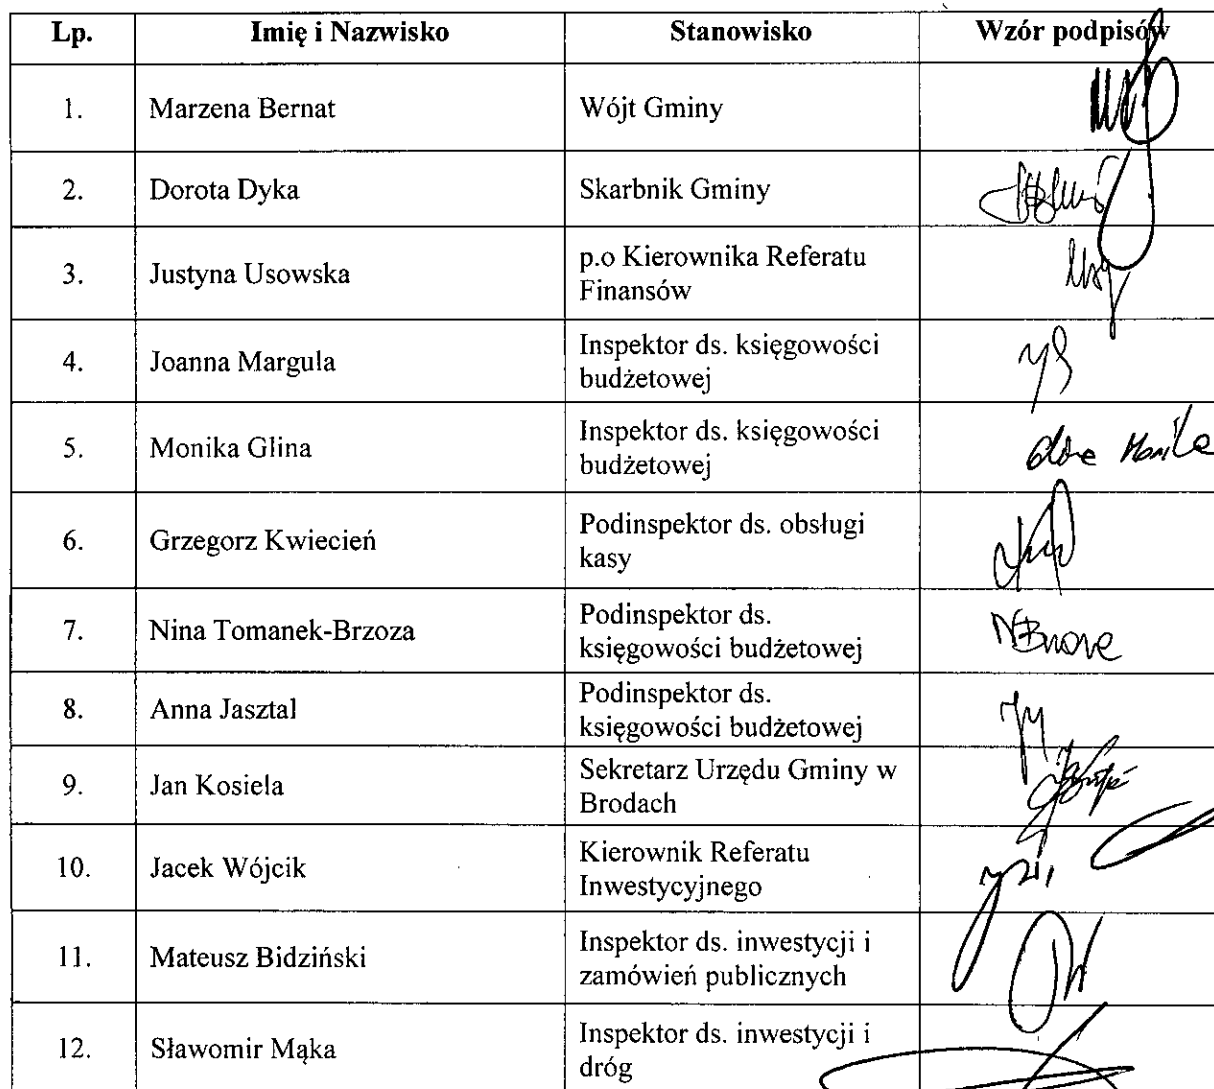 Lp. Imię i Nazwisko Stanowisko Wzór podpisów
1. Marzena Bernat Wójt Gminy
2. Dorota Dyka Skarbnik Gminy
3. Justyna Usowska p.o Kierownika Referatu
Finansów
4. Joanna Margula Inspektor ds. księgowości
budżetowej
5. Monika Glina Inspektor ds. księgowości
budżetowej
6. Grzegorz Kwiecień Podinspektor ds. obsługi
kasy
7. Nina Tomanek-Brzoza Podinspektor ds.
księgowości budżetowej
8. Anna Jasztal Podinspektor ds.
księgowości budżetowej
9. Jan Kosiela Sekretarz Urzędu Gminy w
Brodach
10. Jacek Wójcik Kierownik Referatu
Inwestycyjnego
11. Mateusz Bidziński Inspektor ds. inwestycji i
zamówień publicznych
12. Sławomir Mąka Inspektor ds. inwestycji i
dróg